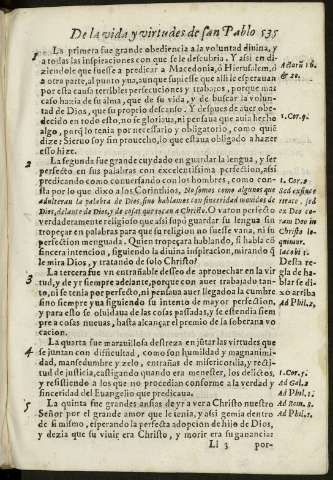 De la vida y virtudes de san Pablo 535
1 La primera fue grande obediencia a la voluntad diuina, y
a todas las inspiraciones con que se le descubria. Y assi en di-
ziendole que fuesse a predicar a Macedonia, ó Hierusalem, ó
a otra parte, al punto yua, aunque supiesse que alli le esperauan
por esta causa terribles persecuciones y trabajos, porque mas
caso hazia de su alma, que de su vida, y de buscar la volun-
tad de Dios, que su proprio descanso. Y despues de auer obe-
decido en todo esto, no se gloriaua, ni pensaua que auia hecho
algo, porq̃ lo tenia por necessario y obligatorio, como quiẽ
dize: Sieruo soy sin prouecho, lo que estaua obligado a hazer
esso hize.
Actorũ 16.
& 20.
1. Cor. 9.
2 La segunda fue grande cuydado en guardar la lengua, y ser
perfecto en sus palabras con excelentissima perfection, assi
predicando como conuersando con los hombres, como con-
sta por lo que dixo a los Corinthios, No somos como algunos que
adulteran la palabra de Dios, sino hablamos con sinceridad mouidos de
Dios, delante de Dios, y de cosas que tocan a Christo. O varon perfecto
verdaderamente religioso que assi supo guardar su lengua sin
tropeçar en palabras para que su religion no fuesse vana, ni su
perfection menguada. Quien tropeçara hablando, si habla cõ
sincera intencion, siguiendo la diuina inspiracion, mirando q̃
le mira Dios, y tratando de solo Christo?
2. Cor. 2
Sed ex since
ritate, sed
ex Deo co-
ram Deo in
Christo lo-
quimur.
Iacobi 1.
Desta re-
gla de ha-
blar se di-
xo arriba
3 La tercera fue vn entrañable desseo de aprouechar en la vir
tud, y de yr siempre adelante, porque con auer trabajado tan-
to, ni se tenia por perfecto, ni pensaua auer llegado a la cumbre
sino siempre yua siguiendo su intento de mayor perfection,
y para esto se oluidaua de las cosas passadas, y se estendia siem
pre a cosas nueuas, hasta alcançar el premio de la soberana vo
cacion.
Ad Phil. 3,
4 La quarta fue marauillosa destreza en jũtar las virtudes que
se juntan con difficultad, como son humildad y magnanimi-
dad, mansedumbre y zelo, entrañas de misericordia, y recti-
tud de justicia, castigando quando era menester, los delictos,
y resistiendo a los que no procedian conforme a la verdad y
sinceridad del Euangelio que predicaua.
1. Cor. 5.
Ad Gal. 2
5 La quinta fue grandes ansias de yr a ver a Christo nuestro
Señor por el grande amor que le tenia, y assi gemia dentro
de si mismo, esperando la perfecta adopcion de hijo de Dios,
y dezia que su viuir era Christo, y morir era su ganancia:
Ad Phil. 1.
Ad Rom. 8.
Ad Phil. 1.
Ll 3 por-